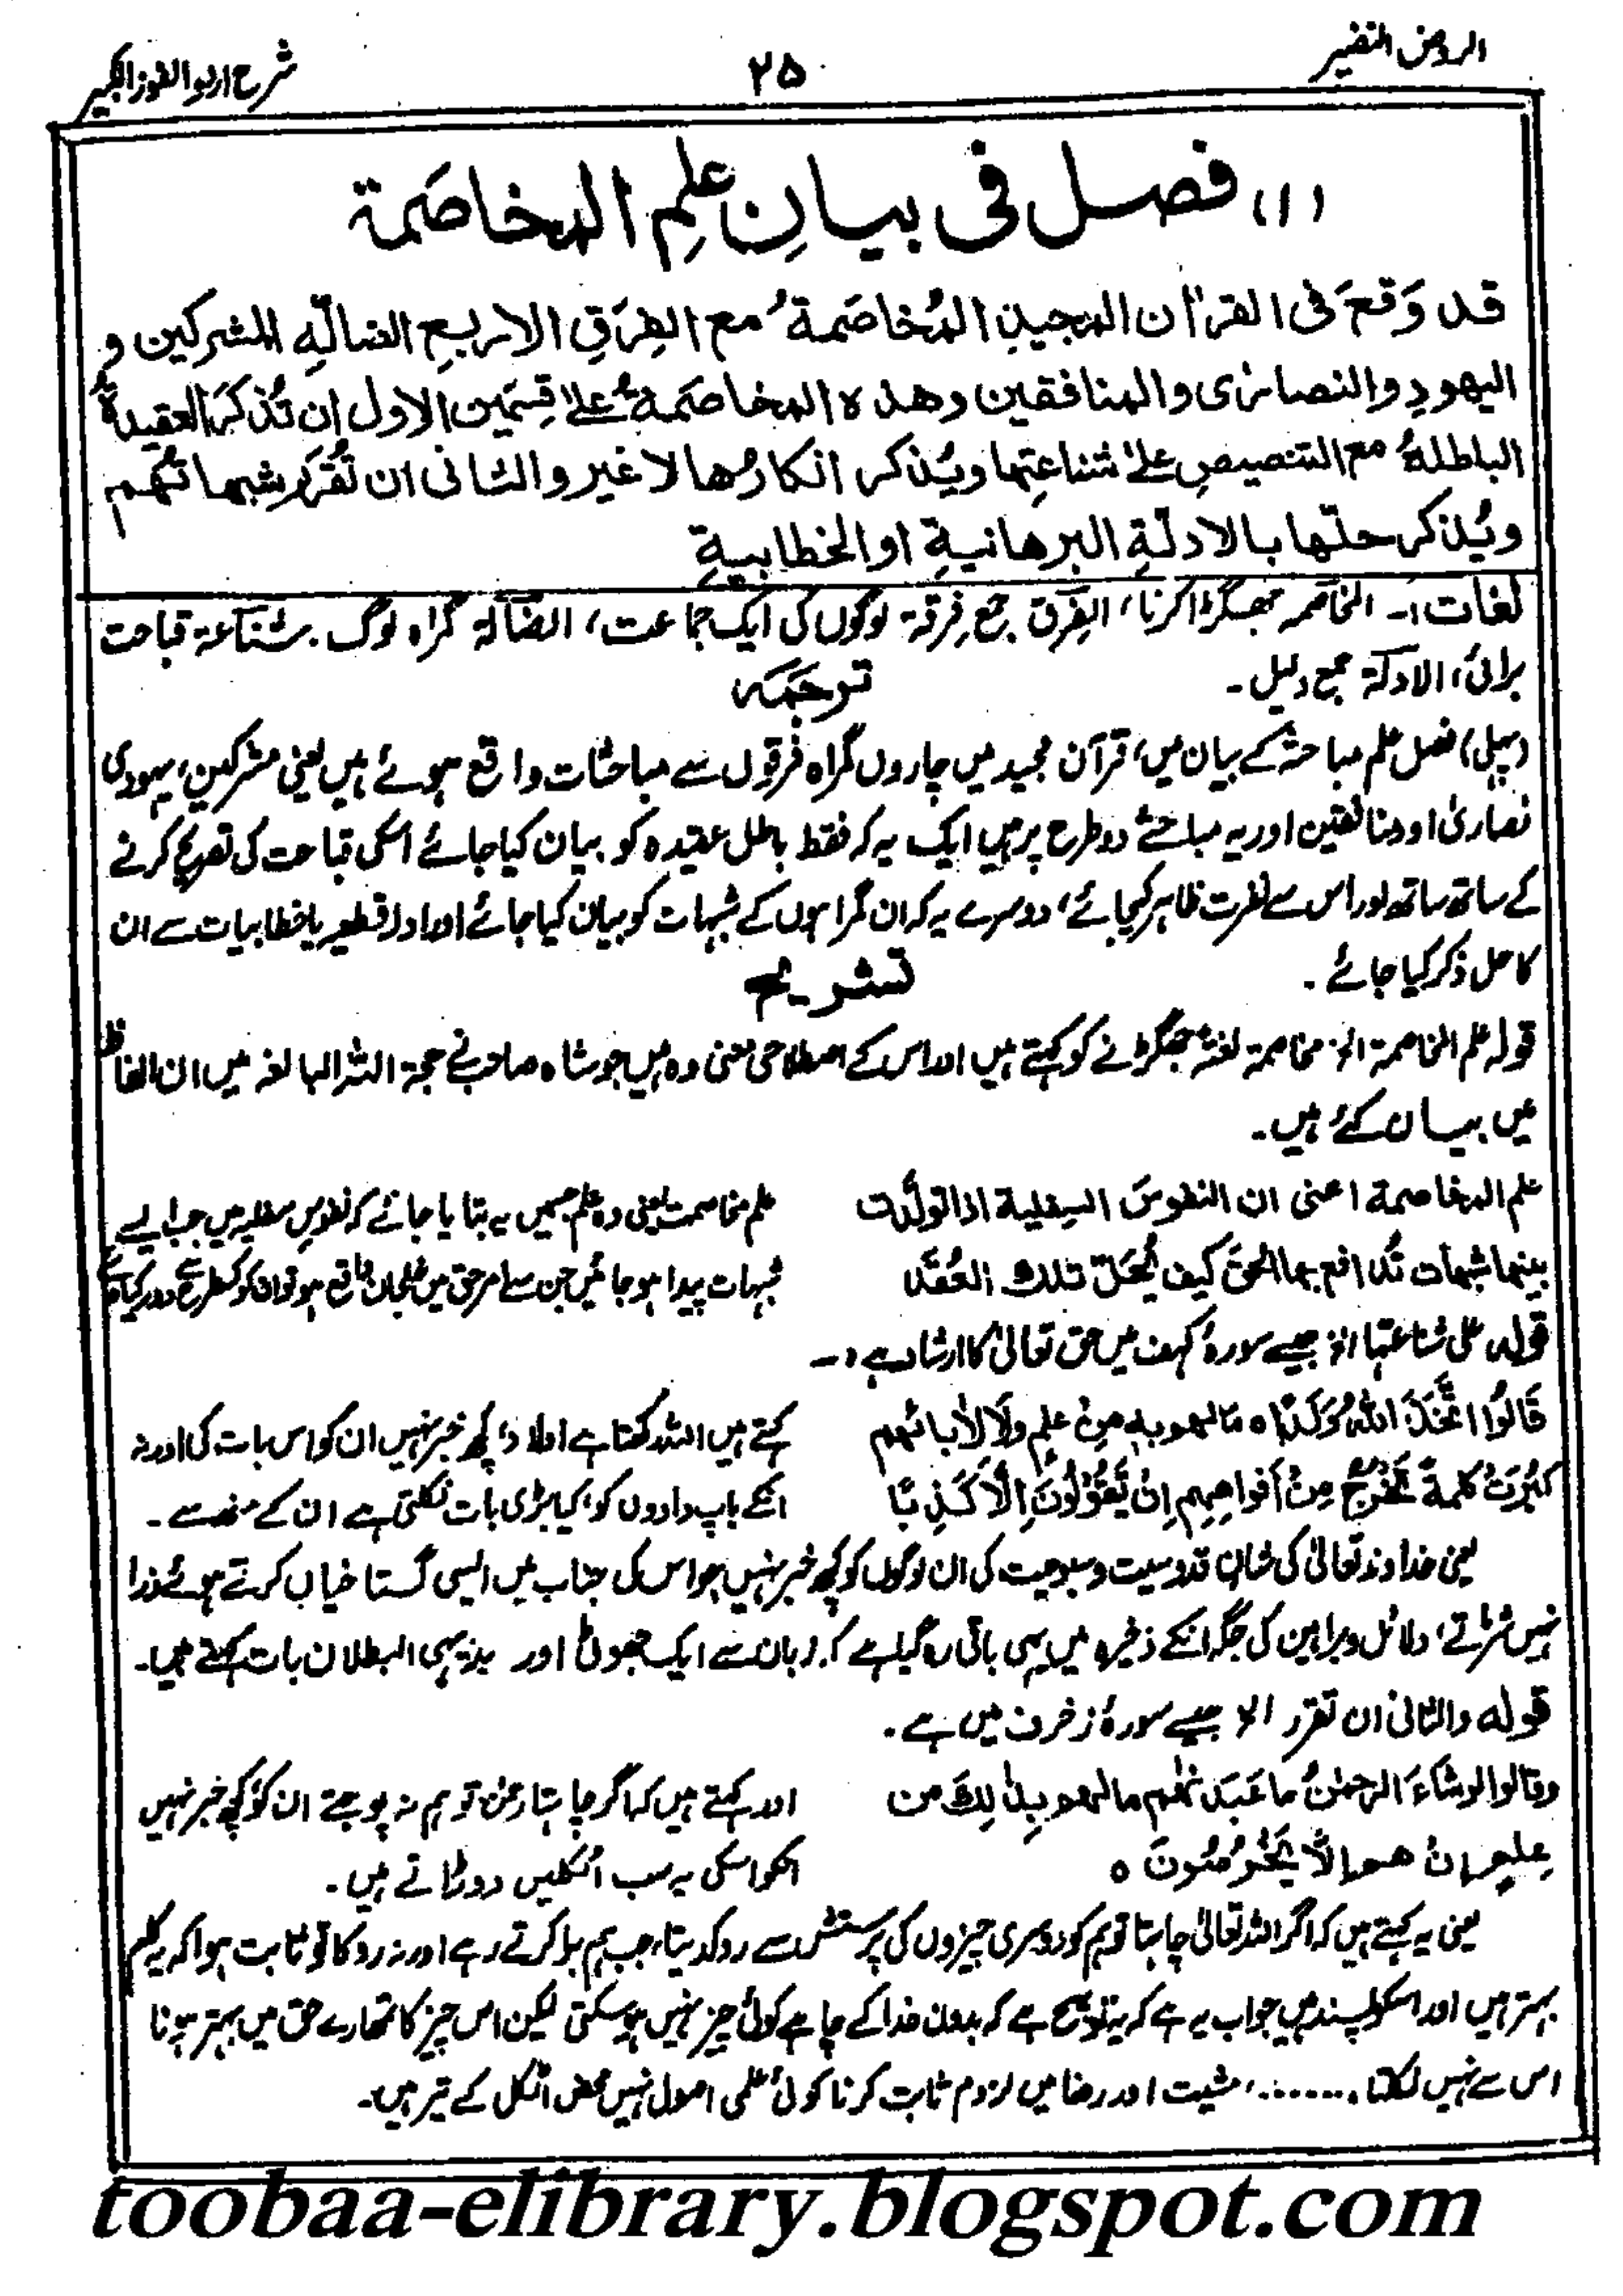 الروض النضیر
۲۵
شرح اردو الفوز الکبیر
(۱) فصل فی بیانِ علمِ المخاصَمة
قد وَقعَ فی القرآن المجیدِ المُخاصَمةُ مع الفِرَقِ الاربعِ الضالّهِ المشرکین و
الیهودِ والنصاریٰ والمنافقین وهذہ المخاصَمةُ علیٰ قِسمَین الاول ان تُذکرَ العقیدةُ
الباطلةُ مع التنصیصِ علیٰ شناعتِها ویُذکر انکارُها لا غیر والثانی ان تُقرَّر شبهاتُهم
ویُذکر حلّها بالادلّةِ البرهانیةِ او الخطابیةِ
لغات:۔ المخاصَمہ جھگڑا کرنا، الفِرَق جمع فِرقة لوگوں کی ایک جماعت، الضآلة گمراہ لوگ۔ شناعة قباحت
برائی، الادلّة جمع دلیل۔
ترجمَہ
(پہلی) فصل علم مباحثہ کے بیان میں، قرآن مجید میں چاروں گمراہ فرقوں سے مباحثات واقع ہوئے ہیں یعنی مشرکین، یہودی
نصاریٰ اور منافقین اور یہ مباحثے دو طرح پر ہیں ایک یہ کہ فقط باطل عقیدہ کو بیان کیا جائے اسکی قباحت کی تصریح کرنے
کے ساتھ ساتھ اور اس سے نفرت ظاہر کیجائے، دوسرے یہ کہ ان گمراہوں کے شبہات کو بیان کیا جائے اور ادلہ قطعیہ یا خطابیات سے ان
کا حل ذکر کیا جائے۔
تشریح
قولہ علم المخاصمة الخ مخاصمة لغةً جھگڑنے کو کہتے ہیں اور اس کے اصطلاحی معنی وہ ہیں جو شاہ صاحب نے حجة اللہ البالغہ میں ان الفاظ
میں بیان کئے ہیں۔
علم المخاصمة اعنی ان النفوسَ السفلیة اذا تولّدت
بینها شبهات تُدافع بها الحقَ کیف یُحَلّ تلك العُقَد
علم مخاصمت یعنی وہ علم جسمیں یہ بتایا جائے کہ نفوسِ سفلیہ میں جب ایسے
شبہات پیدا ہو جائیں جن سے امر حق میں خلجان واقع ہو تو ان کو کسطرح سے دور کیا جائے
قولہ علی شناعتہا الخ جیسے سورۂ کہف میں حق تعالیٰ کا ارشاد ہے:۔
قَالُوا اتَّخَذَ اللّٰہُ وَلَدًاہ مَالهم بہٖ مِنْ علمٍ ولَا لِاٰبائهم
کَبُرَتْ کلمةً تَخْرُجُ مِنْ اَفواهِهِم اِنْ یَّقُوْلُوْنَ اِلَّا کَذِبًا
کہتے ہیں اللہ رکھتا ہے اولاد، کچھ خبر نہیں ان کو اس بات کی اور نہ
انکے باپ دادوں کو، کیا بڑی بات نکلتی ہے ان کے منہ سے۔
یعنی خداوند تعالیٰ کی شان قدوسیت و سبوحیت کی ان لوگوں کو کچھ خبر نہیں جو اس کی جناب میں ایسی گستاخیاں کرتے ہوئے ذرا
نہیں شرماتے، دلائل و براہین کی جگہ انکے ذخیرہ میں یہی باقی رہ گیا ہے کہ زبان سے ایک جھوٹی اور بدیہی البطلان بات کہتے ہیں۔
قولہ والثانی ان تقرر الخ جیسے سورۂ زخرف میں ہے۔
وقالوا لو شَاءَ الرحمٰنُ ما عَبَدنٰهم مالهم بِذٰلِكَ من
عِلمٍ اِنْ هم اِلَّا یَخْرُصُونَ ہ
اور کہتے ہیں کہ اگر چاہتا رحمٰن تو ہم نہ پوجتے ان کو کچھ خبر نہیں
انکو اسکی یہ سب اٹکلیں دوڑاتے ہیں۔
یعنی یہ کہتے ہیں کہ اگر اللہ تعالیٰ چاہتا تو ہم کو دوسری چیزوں کی پرستش سے روکدیتا، جب ہم بلا کرتے رہے اور نہ روکا تو ثابت ہوا کہ یہ کام
بہتر ہیں اور اسکو پسند ہیں جواب یہ ہے کہ یہ تو صحیح ہے کہ بدون خدا کے چاہے کوئی چیز نہیں ہو سکتی لیکن اس چیز کا تمہارے حق میں بہتر ہونا
اس سے نہیں نکلتا ........، مشیت اور رضا میں لزوم ثابت کرنا کوئی علمی اصول نہیں محض اٹکل کے تیر ہیں۔
toobaa-elibrary.blogspot.com